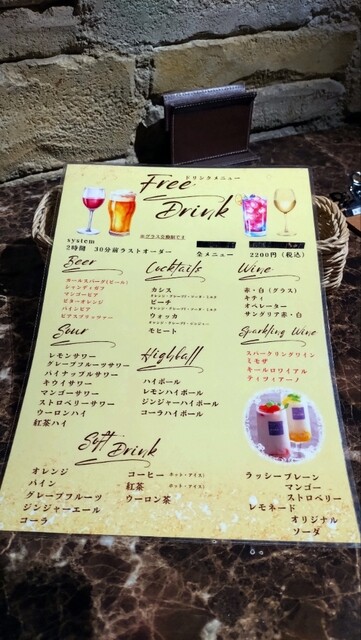 Free
ドリンクメニュー
Drink
※グラス交換制です
system
2時間 30分前ラストオーダー
全メニュー 2200円(税込)
Beer
カールスバーグ(ビール)
シャンディガフ
マンゴービア
ビターオレンジ
パインビア
Cocktails
カシス
ピーチ
ウォッカ
モヒート
Wine
赤・白(グラス)
キティ
オペレーター
サングリア赤・白
Sour
レモンサワー
グレープフルーツサワー
パイナップルサワー
キウイサワー
マンゴーサワー
ストロベリーサワー
ウーロンハイ
紅茶ハイ
Highball
ハイボール
レモンハイボール
ジンジャーハイボール
コーラハイボール
Sparkling Wine
スパークリングワイン
ミモザ
キールロワイアル
ティツィアーノ
Soft Drink
オレンジ
パイン
グレープフルーツ
ジンジャーエール
コーラ
コーヒー(ホット・アイス)
紅茶(ホット・アイス)
ウーロン茶
ラッシープレーン
マンゴー
ストロベリー
レモネード
オリジナル
ソーダ